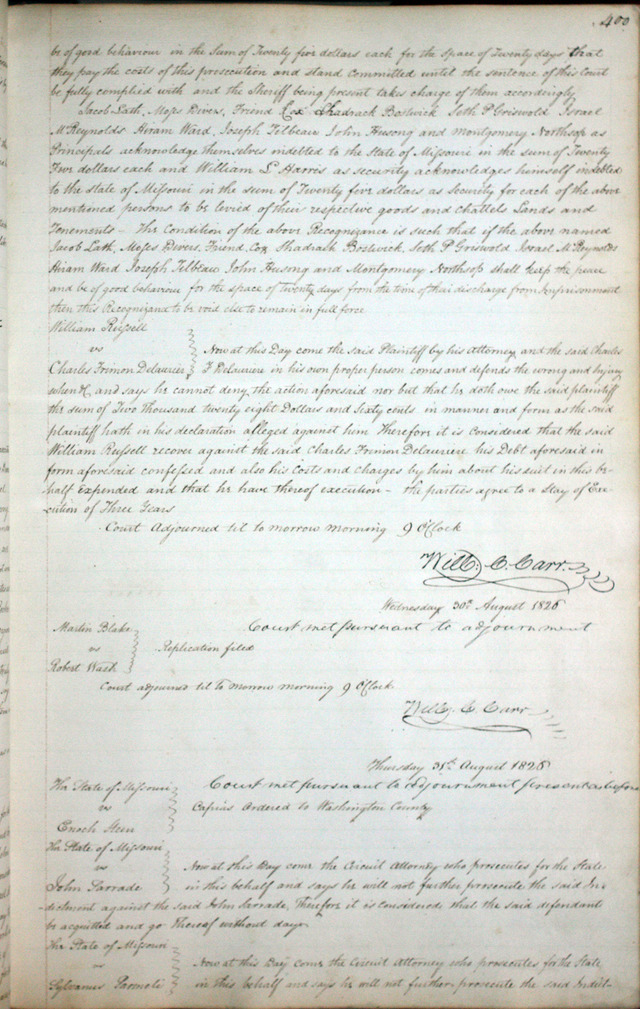 400
be of good behaviour in the Sum of Twenty five dollars each for the space of Twenty days that
they pay the costs of this prosecution and stand committed until the sentence of this Court
be fully complied with and the Sheriff being present takes charge of them accordingly
Jacob Lath, Moses Rivers, Friend Cox Shadrack Bostwick Seth P Griswold Israel
McReynolds Hiram Ward, Joseph Telbeau John Husong and Montgomery Northsop as
Principals acknowledge themselves indebted to the State of Missouri in the sum of Twenty
Five dollars each and William L Harris as security acknowledges himself indebted
to the state of Missouri in the sum of Twenty five dollars as security for each of the above
mentioned persons to be levied of their respective goods and chattels Lands and
Tenements - The Condition of the above Recognizance is such that if the above named
Jacob Lath, Moses Rivers, Friend Cox Shadrack Bostwick, Seth P Griswold Israel McReynolds
Hiram Ward Joseph Telbeau John Husong and Montgomery Northsop shall keep the peace
and be of good behaviour for the space of twenty days from the time of their discharge from Imprisonment
then this Recognizance to be void else to remain in full force
William Russell
vs
Charles Fremon Delauriere
Now at this Day come the said Plaintiff by his Attorney and the said Charles
F Delauriere in his own proper person comes and defends the wrong and injury
when &c and says he cannot deny the action aforesaid nor but that he doth owe the said plaintiff
the sum of Two Thousand twenty eight Dollars and Sixty cents in manner and form as the said
plaintiff hath in his declaration alleged against him Therefore it is considered that the said
William Russell recover against the said Charles Fremon Delauriere his Debt aforesaid in
form aforesaid confessed and also his Costs and Charges by him about his suit in this be-
half Expended and that he have thereof execution - the parties agree to a Stay of Exe-
cution of Three Years
Court Adjourned til to morrow morning 9 OClock
Will. C. Carr
Wednesday 30th August 1826
Court met pursuant to adjournment
Martin Blake
vs
Robert Wash
Replication filed
Court adjourned til to morrow morning 9 OClock
Will. C Carr
Thursday 31st August 1826
Court met pursuant to adjournment present as before
The State of Missouri
vs
Enoch Steen
Capias Ordered to Washington County
The State of Missouri
vs
John Sarrade
Now at this Day come the Circuit Attorney who prosecutes for the State
in this behalf and says he will not further prosecute the said In-
-dictment against the said John Sarrade, Therefore it is considered that the said defendant
be acquitted and go Thereof without day
The State of Missouri
vs
Sylvanus
Now at this Day come the Circuit Attorney who prosecutes for the State
in this behalf and says he will not further prosecute the said Indict-